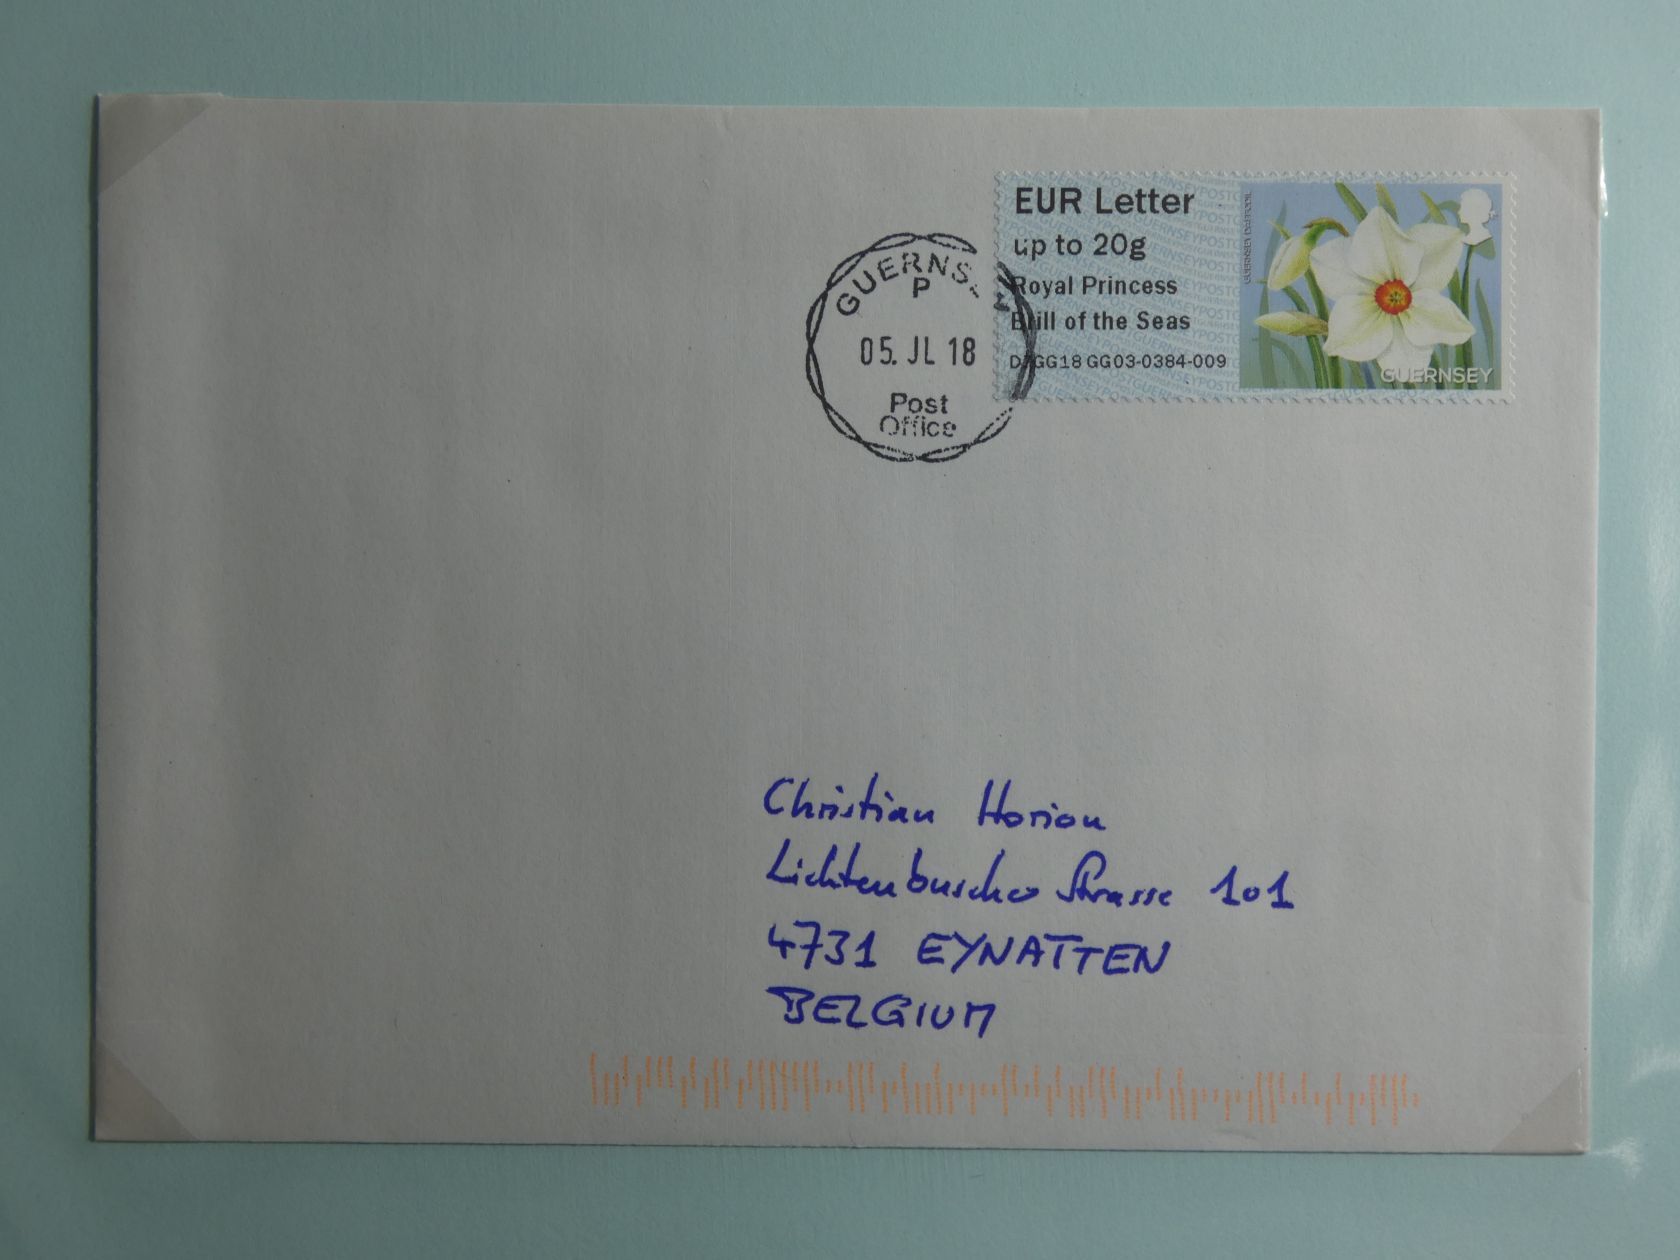 EUR Letter
up to 20g
Royal Princess
Brill of the Seas
GG18 GG03-0384-009
GUERNSEY DAFFODIL
GUERNSEY
GUERNSEY
P
05. JL 18
Post
Office
Christian Horion
Lichtenbuscher Strasse 101
4731 EYNATTEN
BELGIUM